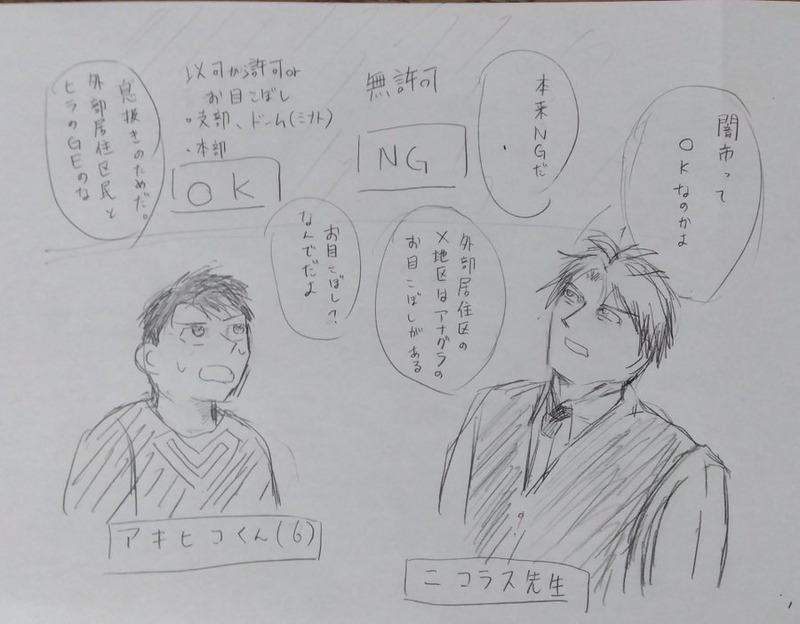 闇市って
OKなのかよ
本来NGだ
無許可
NG
以可が許可or
お目こぼし
・支部、ドーム(ミナト)
・本部
OK
外部居住区の
X地区はアナグラの
お目こぼしがある
お目こぼし?
なんでだよ
息抜きのためだ。
外部居住区民と
ヒラのGEのな
アキヒコくん(6)
ニコラス先生